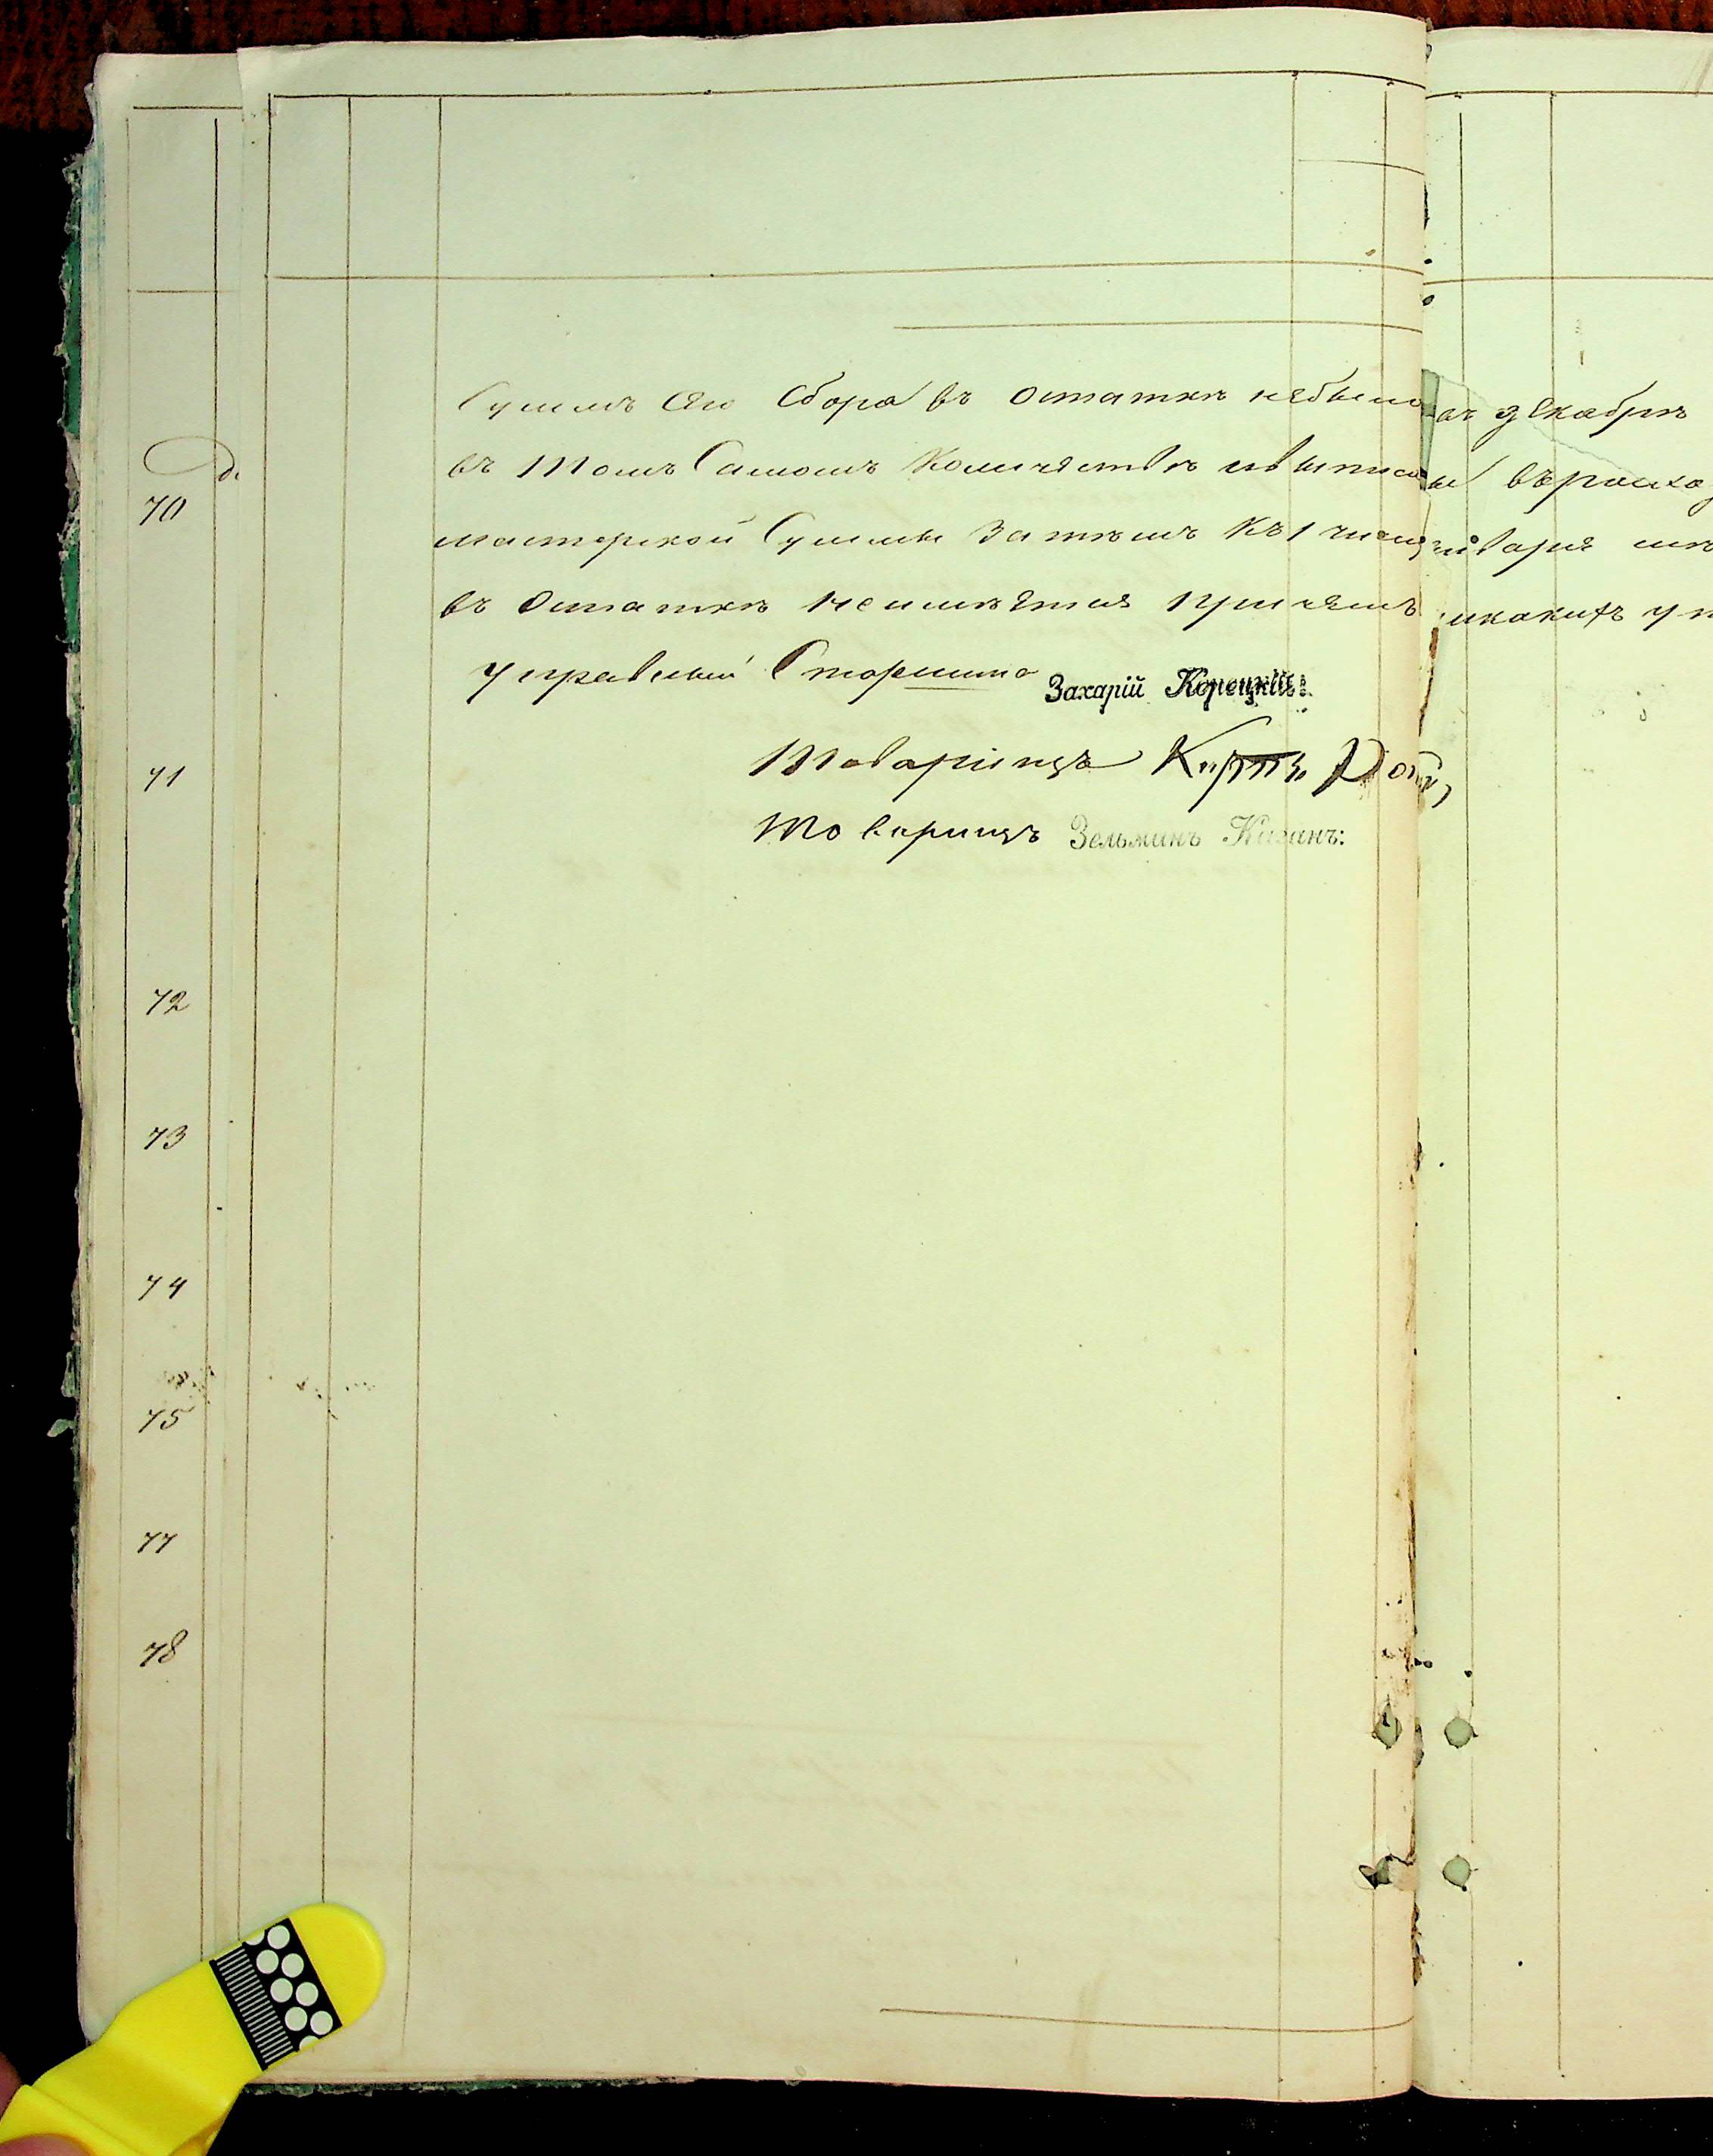 Суммъ Сего Сбора въ остаткѣ небыло въ декабрѣ
въ томъ Самомъ Количествѣ
70
мастерской Суммы Затѣмъ Къ 1 числу января
въ Остаткѣ неимѣется причемъ никакихъ
управный Старшина Захарій Корецкій:
71
товарищъ
товарищъ Зельманъ Каганъ:
72
73
74
75
77
78